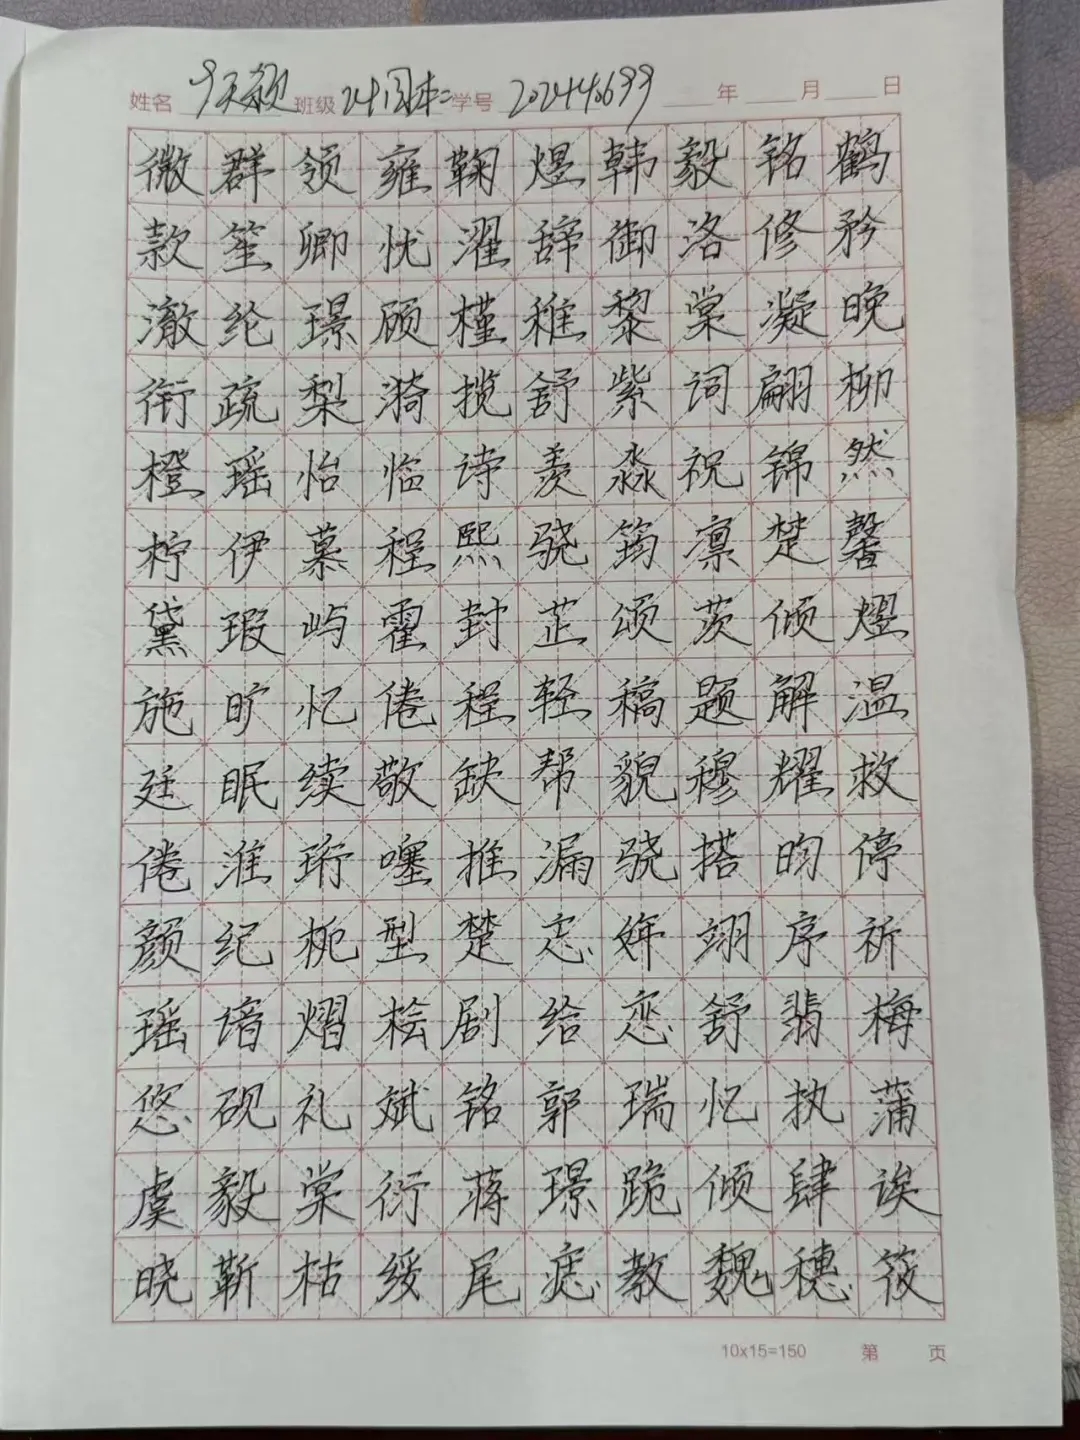 姓名 班级 学号 2024440699 年 月 日
微群领雍鞠煜韩毅铭鹤
款笙卿忧濯辞御洛修矜
澈纶璟顾槿稚黎棠凝晚
衔疏梨漪揽舒紫词翩柳
橙瑶怡临诗羡淼祝锦然
柠伊慕程熙骁筠凛楚馨
黛瑕屿霍封芷颂茨倾熤
施旷忆倦程轻稿题解温
廷眠续敬缺帮貌穆耀救
倦淮珩噻推漏骁搭昀停
颜纪栀型楚忘妍翊序祈
瑶谙熠桧剧给恋舒翡梅
悠砚礼斌铭郭瑞忆执蒲
虞毅棠衍蒋璟跪倾肆诶
晓靳枯绥尾痣教魏穗筱
10x15=150 第 页